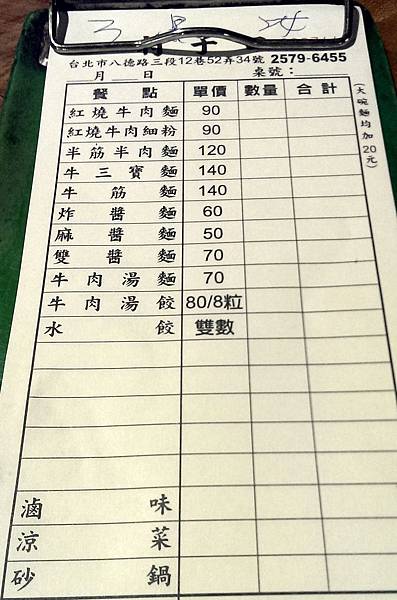 台北市八德路三段12巷52弄34號 2579-6455
月 日 桌號：
餐點 單價 數量 合計
紅燒牛肉麵 90
紅燒牛肉細粉 90
半筋半肉麵 120
牛三寶麵 140
牛筋麵 140
炸醬麵 60
麻醬麵 50
雙醬麵 70
牛肉湯麵 70
牛肉湯餃 80/8粒
水餃 雙數
滷味
涼菜
砂鍋
(大碗麵均加20元)